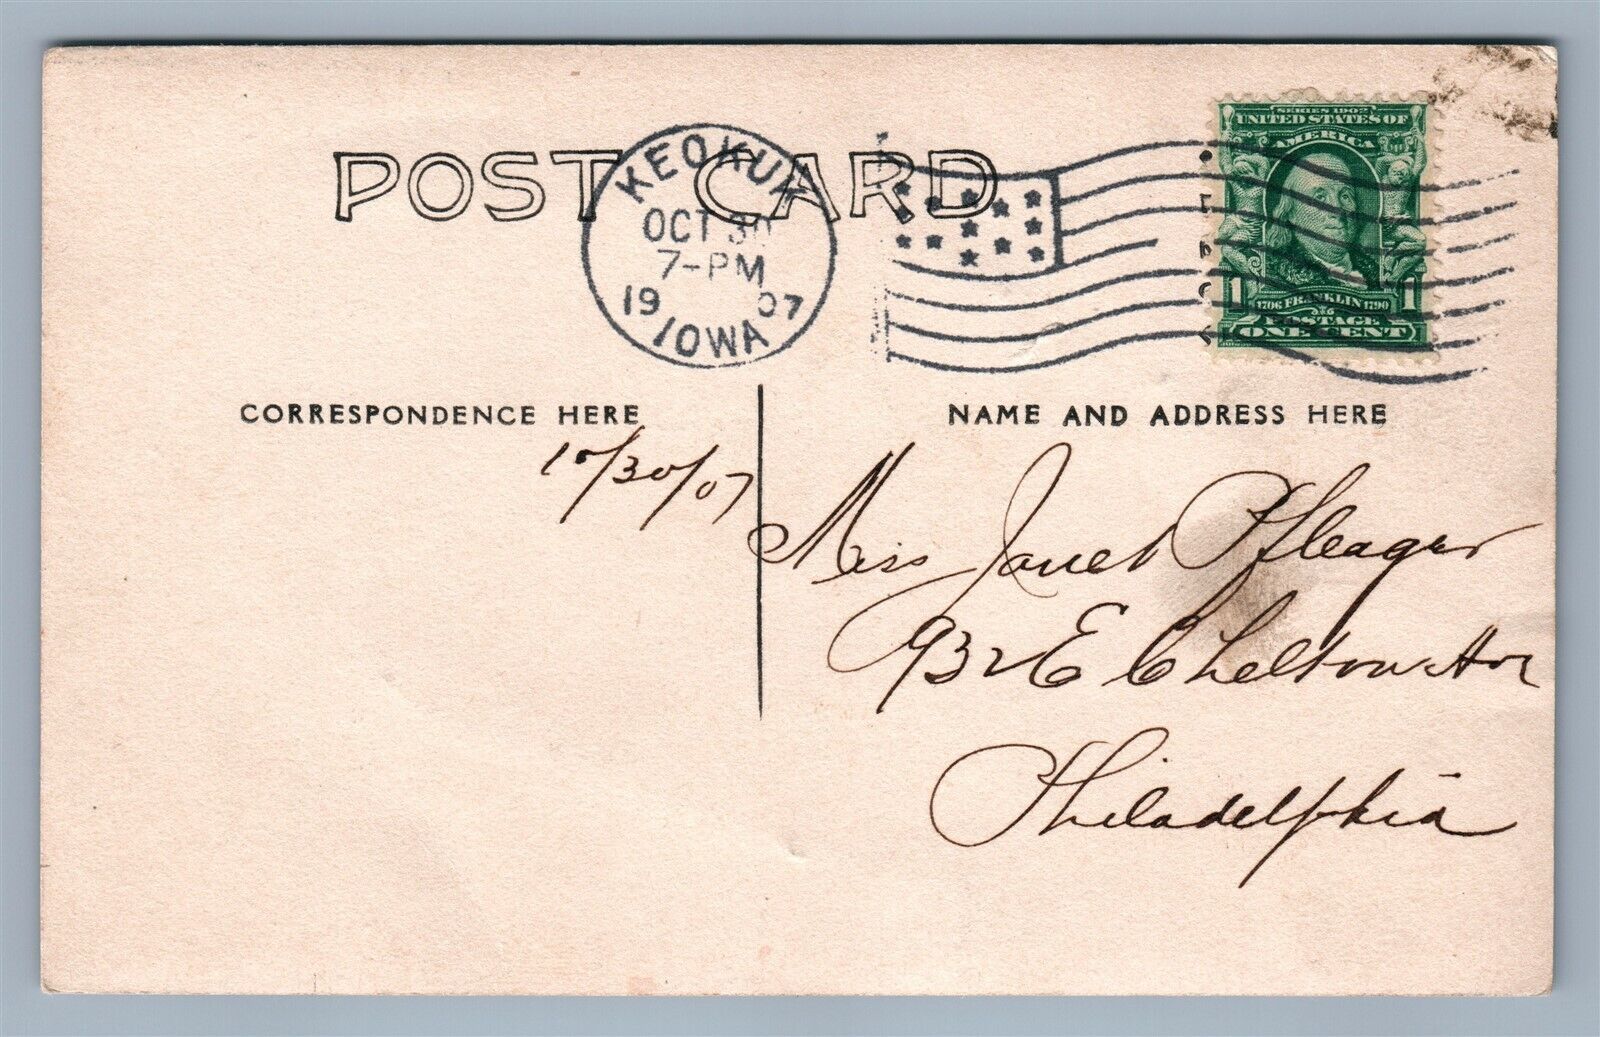 POST CARD
KEOKUK
OCT 30
7-PM
1907
IOWA
SERIES 1902
UNITED STATES OF
AMERICA
1 1706 FRANKLIN 1790 1
POSTAGE
ONE CENT
CORRESPONDENCE HERE
NAME AND ADDRESS HERE
10/30/07
Miss Janet Pfleager
932 E Chelton Ave
Philadelphia